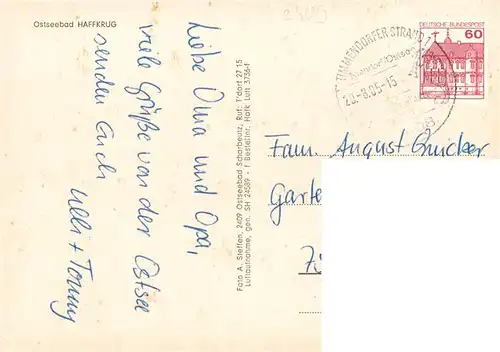 Ostseebad HAFFKRUG
2409
Liebe Oma und Opa,
viele Grüße von der Ostsee
senden Euch
Ulli + Tommy
Foto A. Steffen, 2409 Ostseebad Scharbeutz, Ruf: T'dorf 27 15
Luftaufnahme, gen. SH 24589 - f Bestellnr. Hafk Luft 3736-f
TIMMENDORFER STRAND 1
20.-8.05-15
DEUTSCHE BUNDESPOST
60
Fam. August Quicker
Garte